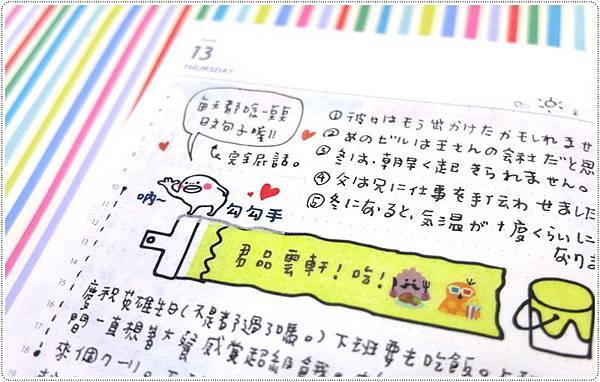 13
THURSDAY
每天都唸一頁頁
日文句子喔!!
完全屁話。
吶~
勾勾手
①彼女はもう出かけたかもしれませ
②あのビルは王さんの会社だと思
③冬は、朝早く起きられません。
④父は兄に仕事を手伝わせました
⑤冬になると、気温が十度くらいに
なりま
君品雲軒!吃!
慶祝英雄生日(不是都過了嗎。)下班要去吃飯。
間一直想著大餐感覺超級
來個クーリ。
10
11
12
13
14
15
16
17
18